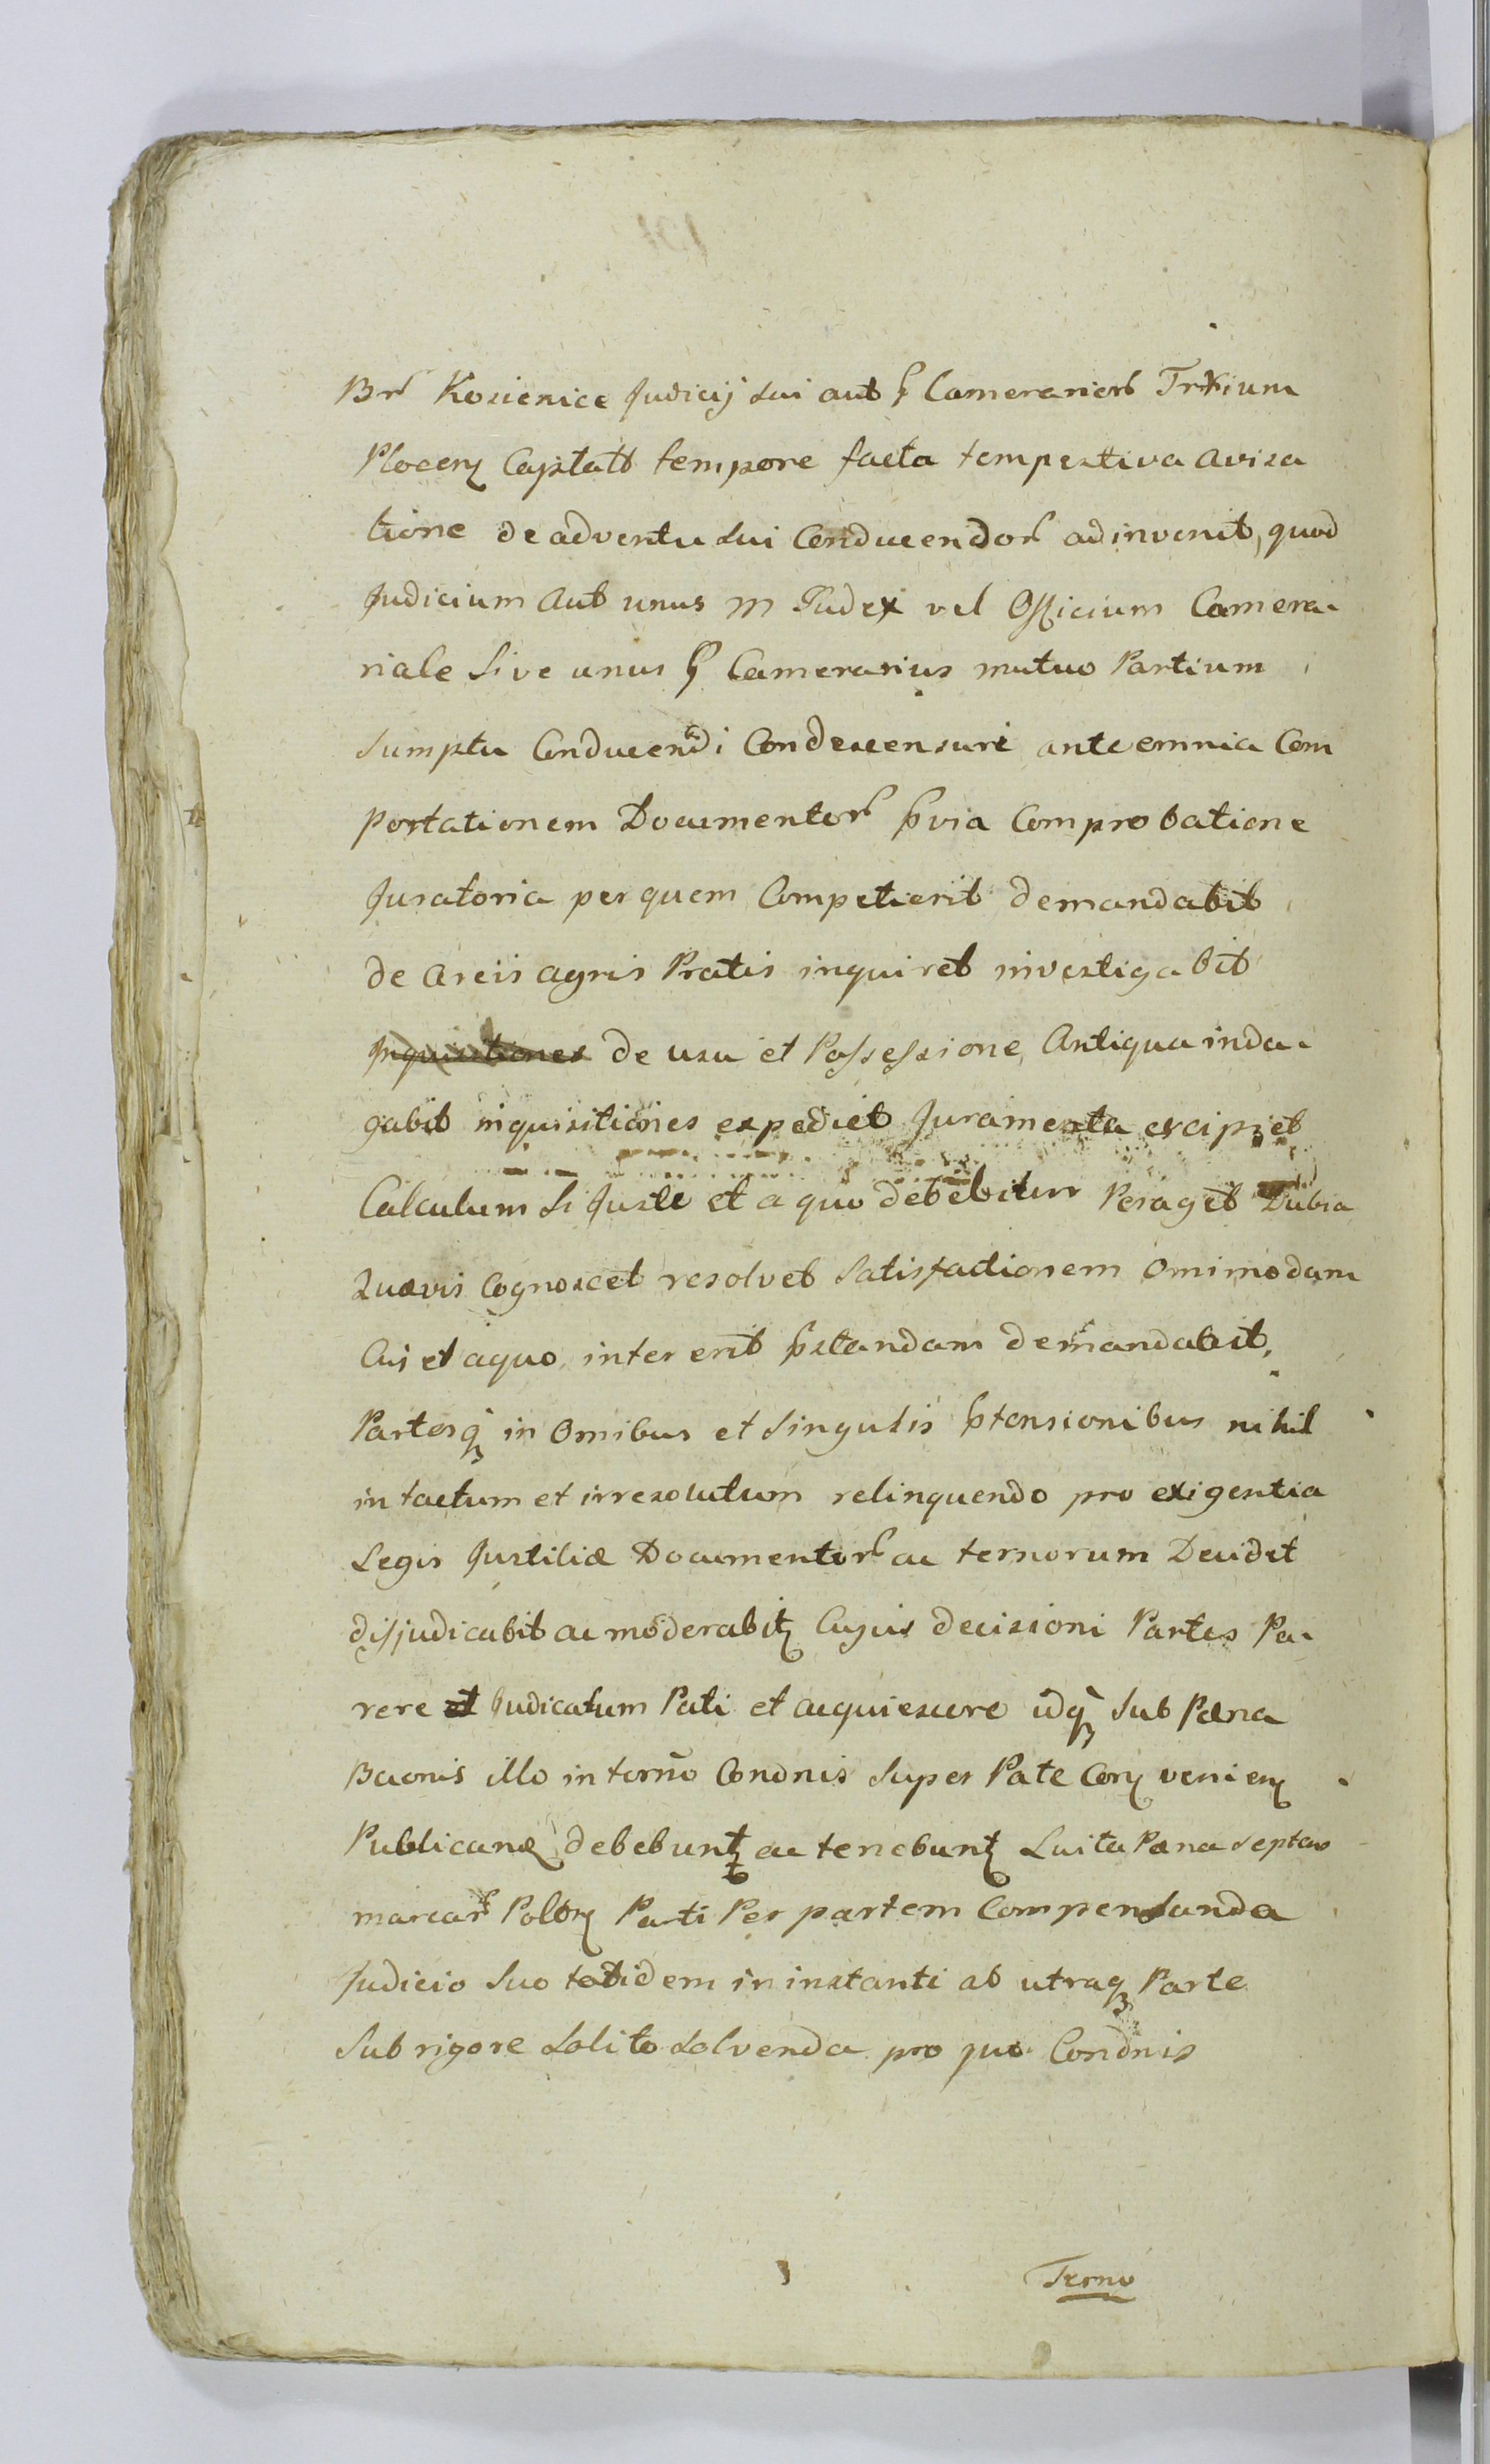 Br Kozienice Judicij sui aut Camerarior Trrium
Plocen Captalt tempore facta tempestiva aviza
tione de adventu sui Conducendor adinvenit, quod
Judicium aut unus M Judex vel Officium Camera-
riale sive unus G Camerarius mutuo Partium
sumptu Conducendi Condescensuri ante omnia Com
portationem Documentor pvia Comprobatione
Juratoria per quem Competierit demandabit
de areis agris Pratis inquiret investigabit
de usu et Possessione Antiqua inda-
gabit inquisitiones expediet Juramenta excipiet
Calculum si Juste et a quo debebitur Peraget Dubia
Quævis Cognoscet resolvet Satisfactionem Omimodam
Cui et a quo intererit pstandam demandabit,
Partesq in Omibus et Singulis ptensionibus nihil
intactum et irresolutum relinquendo pro exigentia
Legis Justitiæ Documentor ac ternorum Decidet
disjudicabit ac moderabit Cujus decisioni Partes Pa-
rere et Judicatum Pati et acquiescere idq sub Pæna
Bacnis illo in termo Condnis super Pate Con venien
Publicand debebunt ac tenebunt Luita Pæna septem
marcar Poltn Parti Per partem Compensanda
Judicio suo totidem in instanti ab utraq Parte
sub rigore solito solvenda pro quo Condnis
Termo